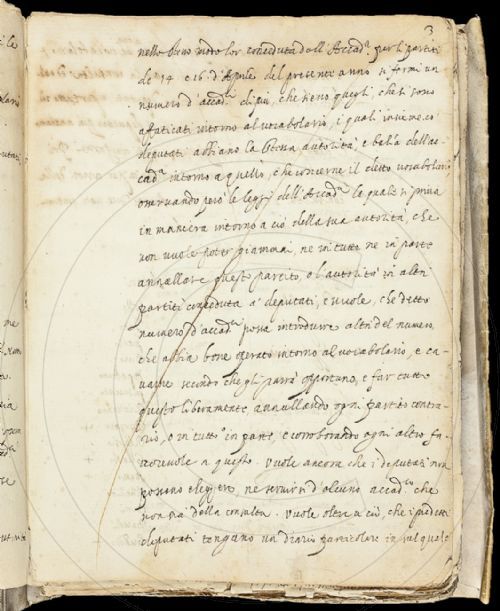 3
nello stesso modo lor conceduta dall'Accad.ª per li partiti
de' 14 e 16 d'Aprile del presente anno si formi un
numero d'accad.ci di più, che sieno quegli che si sono
affaticati intorno al vocabolario, i quali insieme co'
deputati abbiano la stessa autorità, e balìa dell'Ac-
cad.ª intorno a quello, che concerne il detto vocabolario
osservando però le leggi dell'Accad.ª la quale si priva
in maniera intorno a ciò della sua autorità, che
non vuole poter giammai, ne in tutto ne in parte
annullare questo partito, o l'autorità in altri
partiti conceduta a' deputati, e vuole, che detto
numero d'accad.ci possa introdurre altri del numero
che abbia bene operato intorno al vocabolario, e ca-
varne secondo che gli parrà opportuno, e far tutto
questo liberamente, annullando ogni partito contra-
rio, o in tutto o in parte, e corroborando ogni altro fa-
vorevole a questo. Vuole ancora che i deputati non
possano eleggere, ne servirsi d'alcuno accad.co che
non sia della consulta. Vuole oltre a ciò, che i predetti
deputati tengano un diario particolare in sul quale